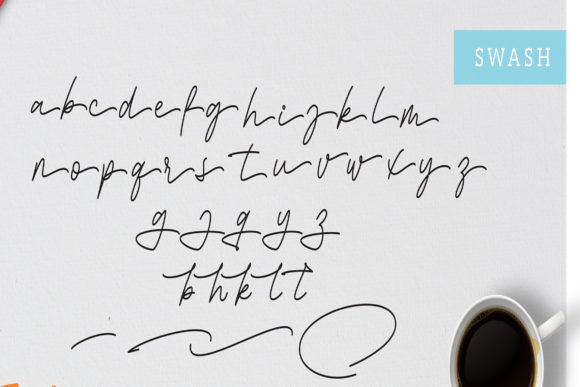 SWASH
abcdefghijklm
nopqrstuvwxyz
gjqyz
bhklt